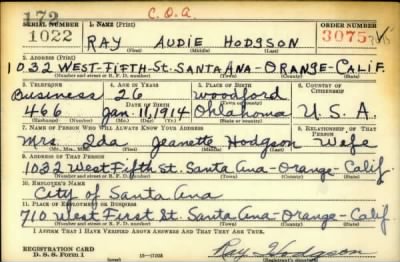 172 C.O.A.
SERIAL NUMBER 1. NAME (Print) ORDER NUMBER
1022 RAY AUDIE HODGSON 3075
(First) (Middle) (Last)
2. ADDRESS (Print)
1032 WEST-FIFTH-St. SANTA ANA-ORANGE-CALIF.
(Number and street or R. F. D. number) (Town) (County) (State)
3. TELEPHONE 4. AGE IN YEARS 5. PLACE OF BIRTH 6. COUNTRY OF CITIZENSHIP
Business 26 Woodford
DATE OF BIRTH
466 Jan. 11, 1914 Oklahoma U.S.A.
(Exchange) (Number) (Mo.) (Day) (Yr.) (State or country)
7. NAME OF PERSON WHO WILL ALWAYS KNOW YOUR ADDRESS 8. RELATIONSHIP OF THAT PERSON
Mrs. Ida Jeanette Hodgson Wife
(Mr., Mrs., Miss) (First) (Middle) (Last)
9. ADDRESS OF THAT PERSON
1032 West Fifth St. Santa Ana-Orange-Calif.
(Number and street or R. F. D. number) (Town) (County) (State)
10. EMPLOYER'S NAME
City of Santa Ana
11. PLACE OF EMPLOYMENT OR BUSINESS
710 West First St. Santa Ana-Orange-Calif
(Number and street or R. F. D. number) (Town) (County) (State)
I AFFIRM THAT I HAVE VERIFIED ABOVE ANSWERS AND THAT THEY ARE TRUE.
REGISTRATION CARD
D. S. S. Form 1 Ray Hodgson
(Registrant's signature)